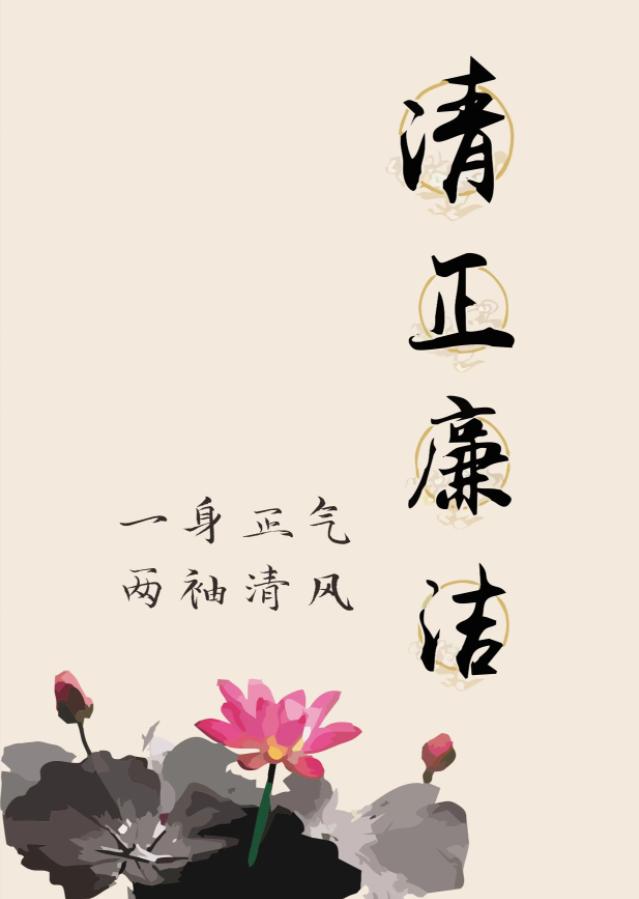 清正廉洁
一身正气
两袖清风